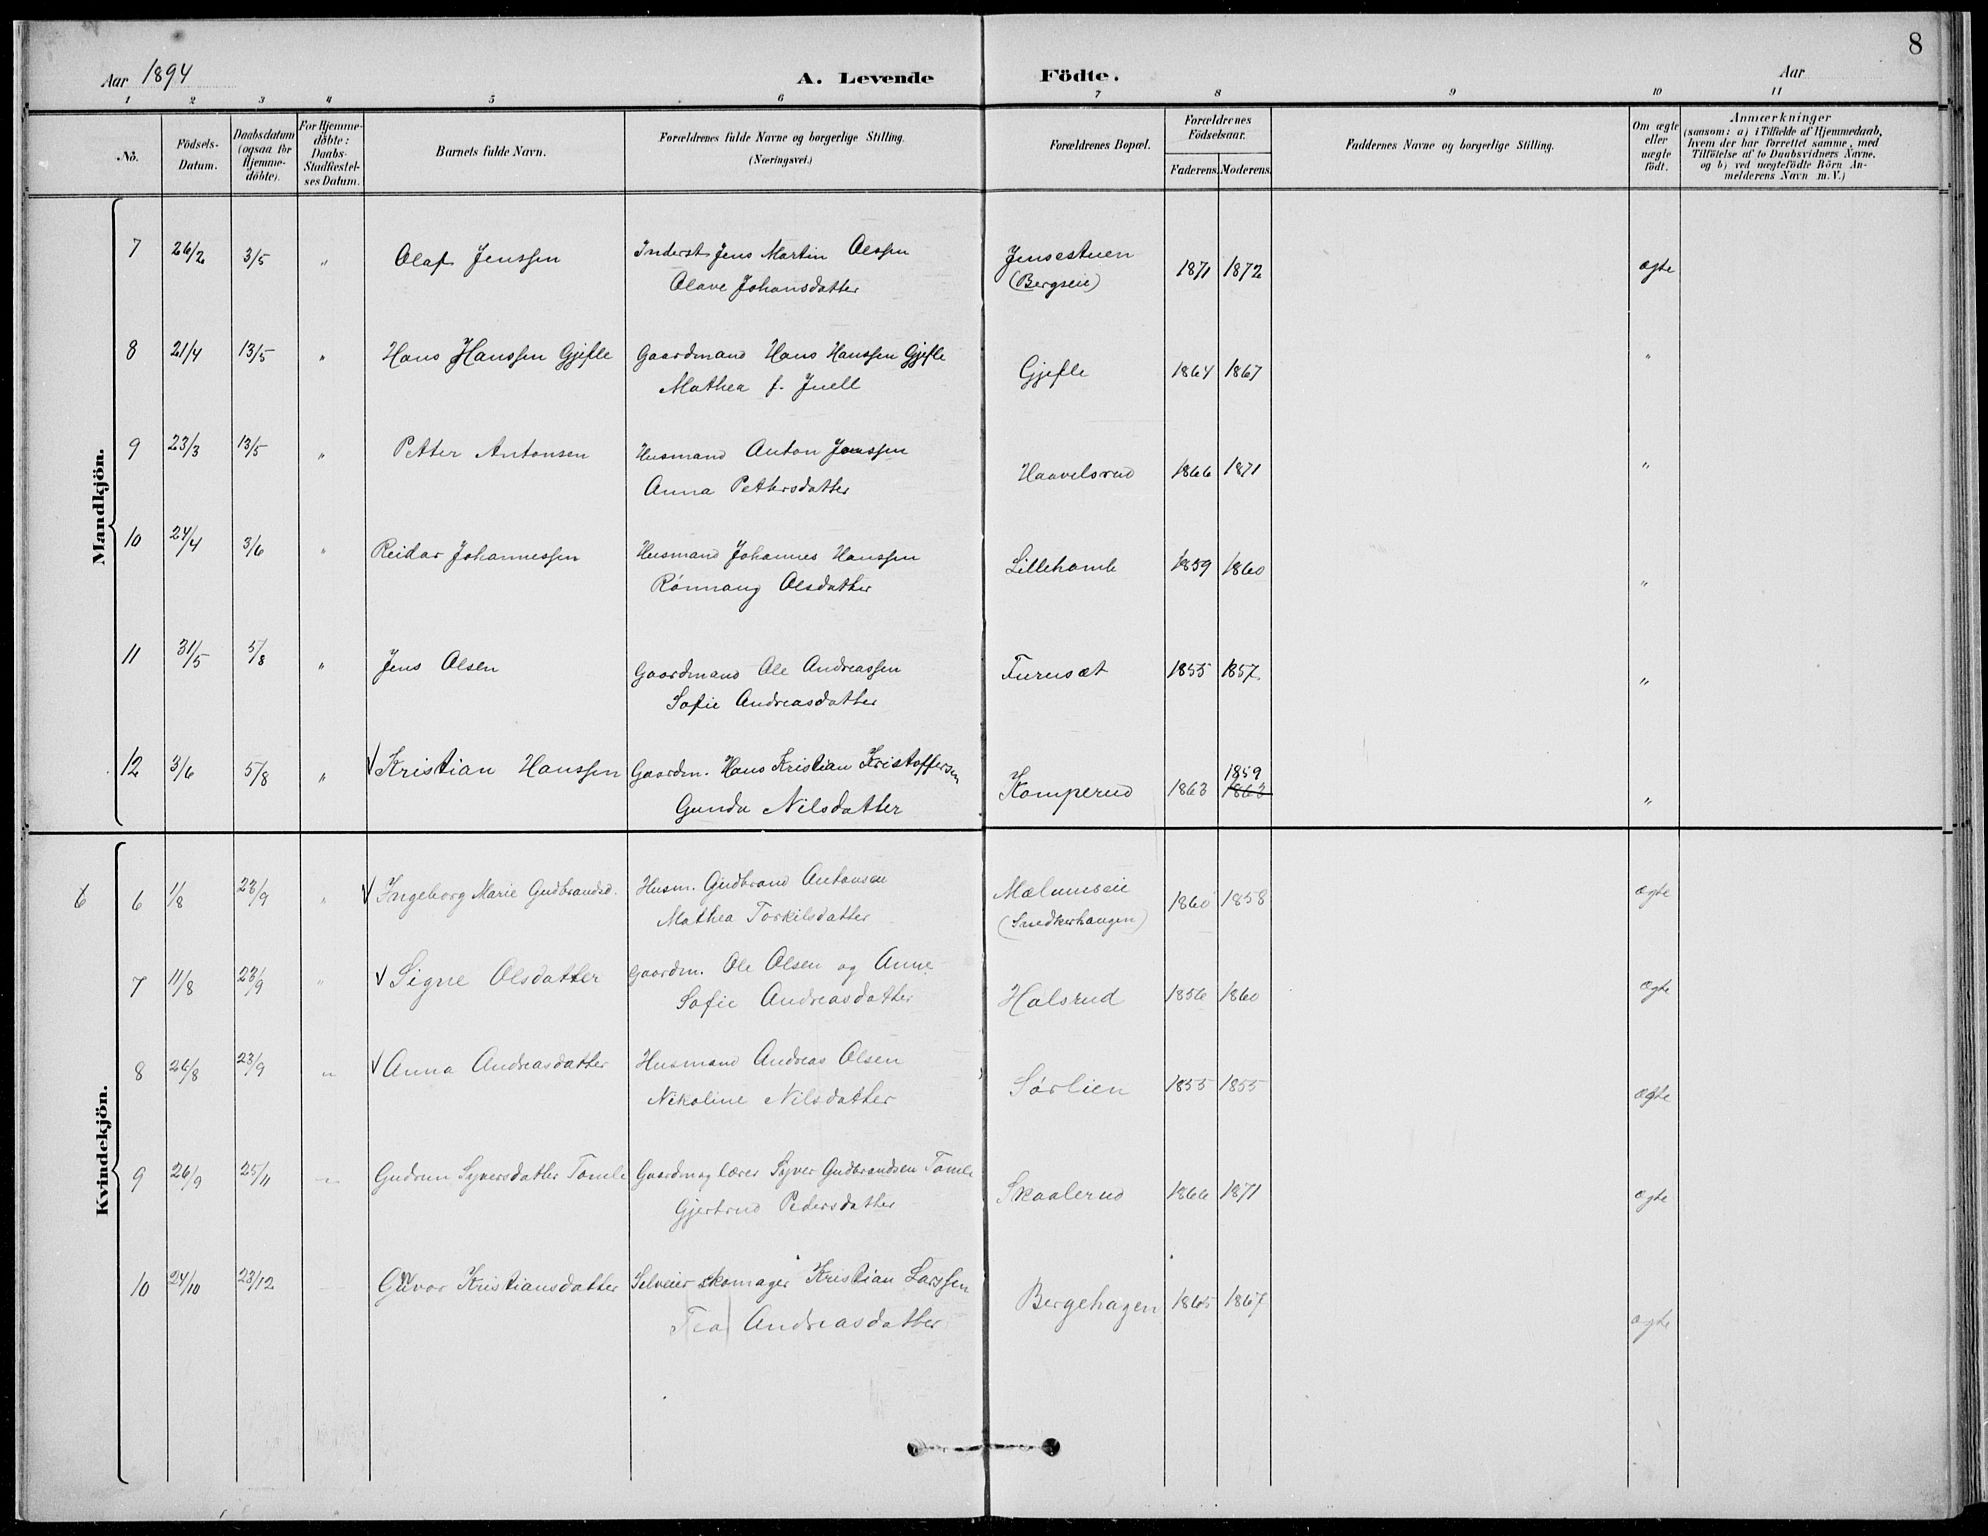 8
Aar 1894 A. Levende Födte. Aar
1 2 3 4 5 6 7 8 9 10 11
No.
Födsels-Datum.
Daabsdatum (ogsaa for Hjemme-döbte).
For Hjemme-döbte: Daabs-Stadfæstel-ses Datum.
Barnets fulde Navn.
Forældrenes fulde Navne og borgerlige Stilling. (Næringsvei.)
Forældrenes Bopæl.
Forældrenes Födselsaar.
Faderens. Moderens.
Faddernes Navne og borgerlige Stilling.
Om ægte eller uægte födt.
Anmærkninger
(saasom: a) i Tilfælde af Hjemmedaab,
hvem der har forrettet samme, med
Tilföielse af to Daabsvidners Navne,
og b) ved uægtefödte Börn An-
melderens Navn m. V.)
Mandkjön.
7 26/2 3/5 " Olaf Jenssen Inderst Jens Martin Olssen Jensestuen 1871 1872 ægte
Olave Johansdatter (Bergseie)
8 21/4 13/5 " Hans Hanssen Gjefle Gaardmand Hans Hanssen Gjefle Gjefle 1864 1867 "
Mathea f. Juell
9 23/3 13/5 " Petter Antonsen Husmand Anton Jonssen Haavelsrud 1866 1871 "
Anna Pettersdatter
10 24/4 3/6 " Reidar Johannessen Husmand Johannes Hanssen Lillehamle 1859 1860 "
Rønnaug Olsdatter
11 31/5 5/8 " Jens Olsen Gaardmand Ole Andreassen Furusæt 1855 1857 "
Sofie Andreasdatter
12 3/6 5/8 " √ Kristian Hanssen Gaardm. Hans Kristian Kristoffersen Kamperud 1863 1859 1863 "
Gunda Nilsdatter
Kvindekjön.
6 6 1/8 23/9 " √ Ingeborg Marie Gudbrandsd. Husm. Gudbrand Antonsen Mælumseie 1860 1858 ægte
Mathea Torkilsdatter
7 11/8 23/9 " √ Signe Olsdatter Gaardm. Ole Olsen og Anne Halsrud 1856 1860 ægte
Sofie Andreasdatter
8 26/8 23/9 " √ Anna Andreasdatter Husmand Andreas Olsen Sørlien 1855 1855 ægte
Nikoline Nilsdatter
9 26/9 25/11 " Gudrun Syversdatter Tomle Gaardm og lærer Syver Gudbrandsen Tomle Skaalerud 1866 1871 ægte
Gjertrud Pedersdatter
10 24/10 23/12 Guvor Kristiansdatter Selveier skomager Kristian Larssen Bergehagen 1865 1867 ægte
Tea Andreasdatter